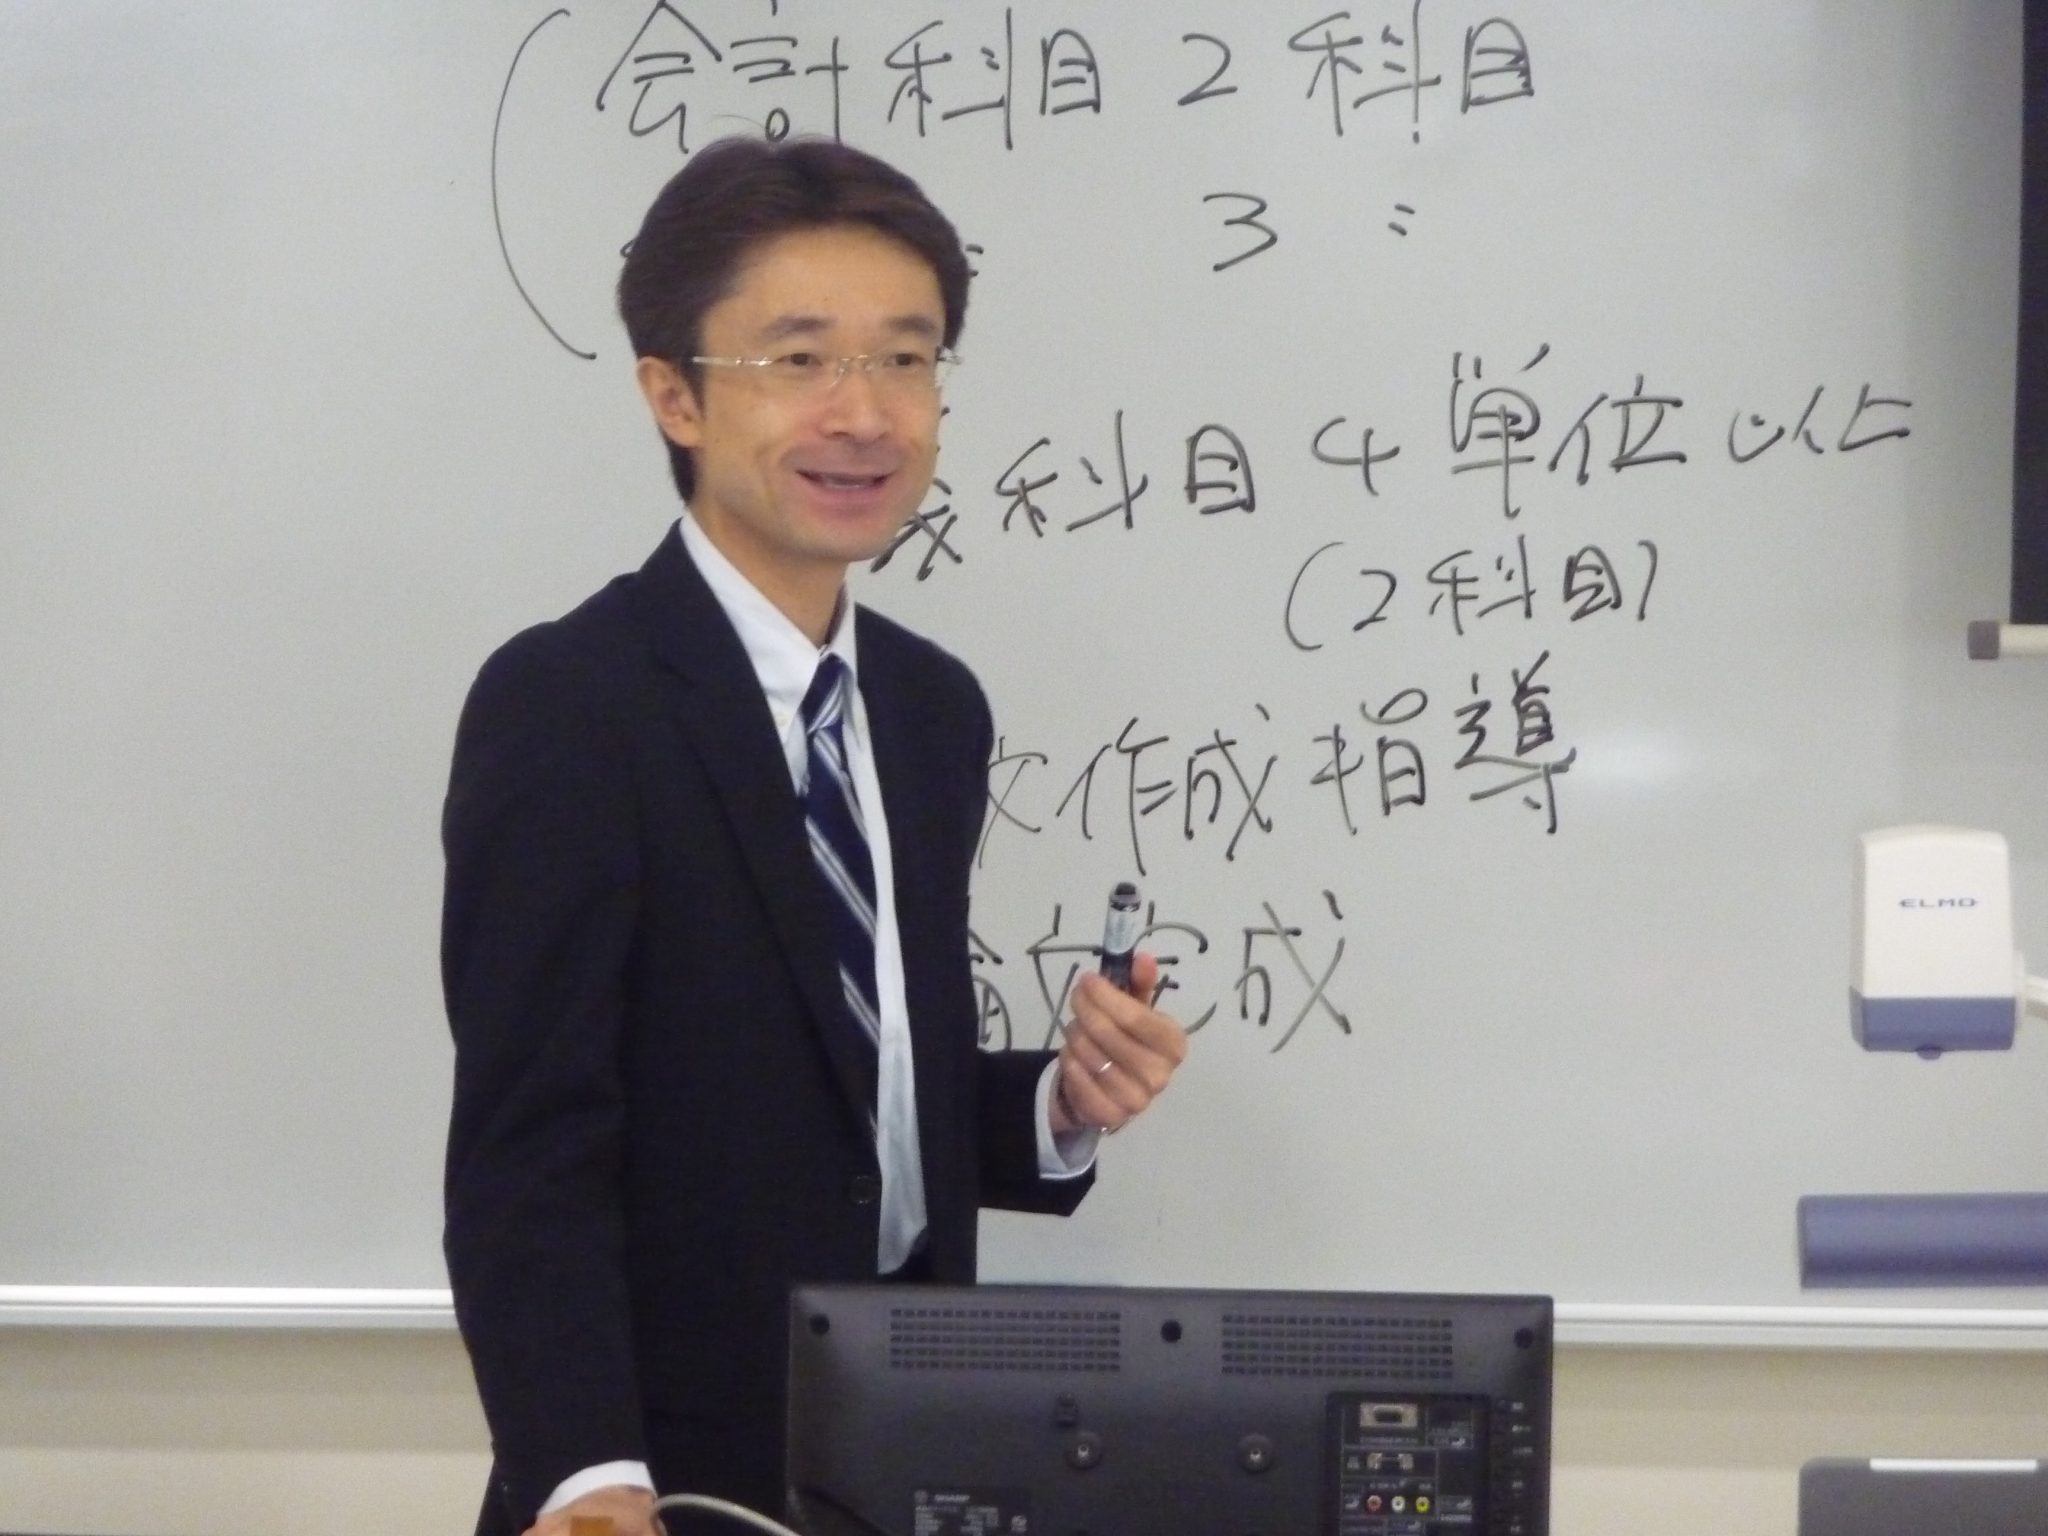 (会計科目 2科目
3 〃
科目 4単位以上
(2科目)
文作成指導
論文完成
ELMO
SHARP